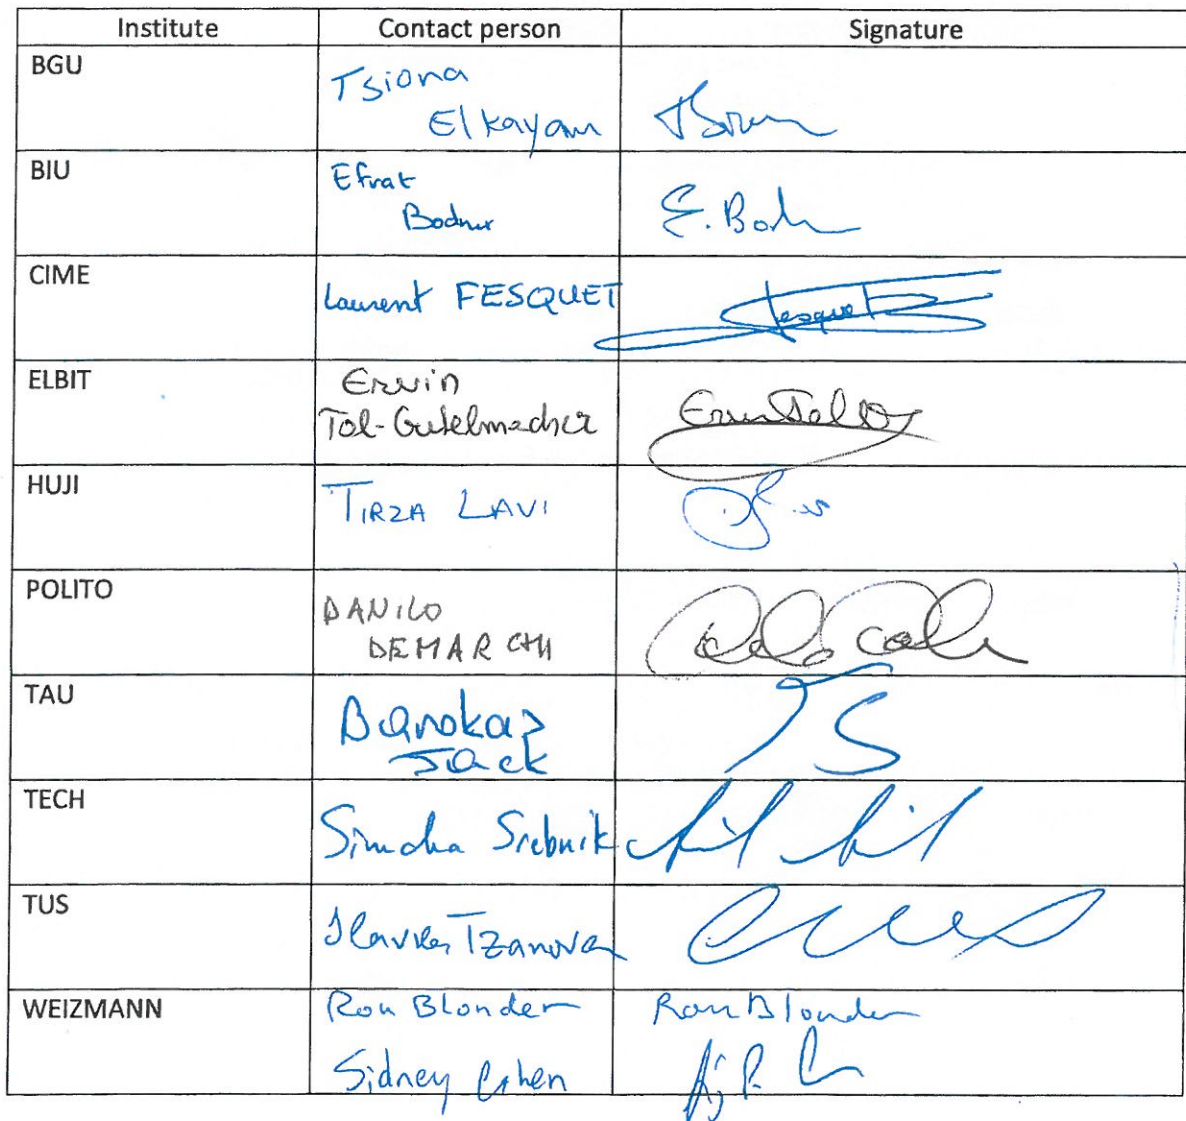 Institute Contact person Signature
BGU
Tsiona
Elkayam
BIU
Efrat
Bodner
E. Bod
CIME
Laurent FESQUET
Fesquet
ELBIT
Erwin
Tol-Gutelmacher
HUJI
TIRZA LAVI
POLITO
DANILO
DEMARCHI
TAU
Barokas
Jack
JS
TECH
Simcha Srebnik
TUS
Slavka Tzanova
WEIZMANN
Ron Blonder Ron Blonder
Sidney Cohen